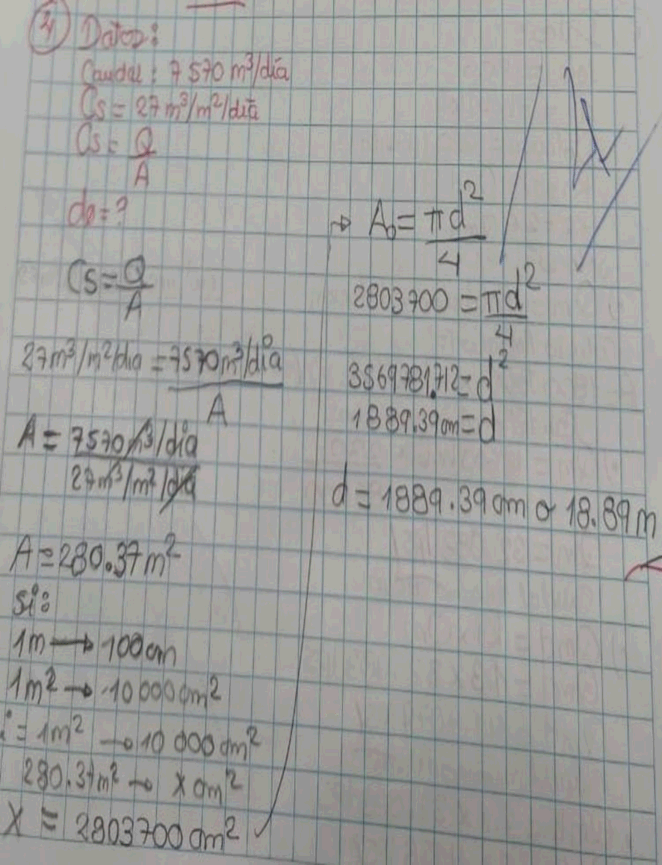 4) Datos:
Caudal: 7570 m³/día
Cs = 27 m³/m²/día
Cs = Q/A
do = ?
Cs = Q/A
27 m³/m²/dia = 7570 m³/día / A
A = 7570 m³/día / 27 m³/m²/día
A = 280.37 m²
si:
1m → 100 cm
1m² → 10000 cm²
i = 1m² → 10 000 cm²
280.37 m² → x cm²
X = 2803700 cm²
→ Ao = πd²/4
2803700 = πd²/4
3569781.712 = d²
1889.39 cm = d
d = 1889.39 cm o 18.89 m